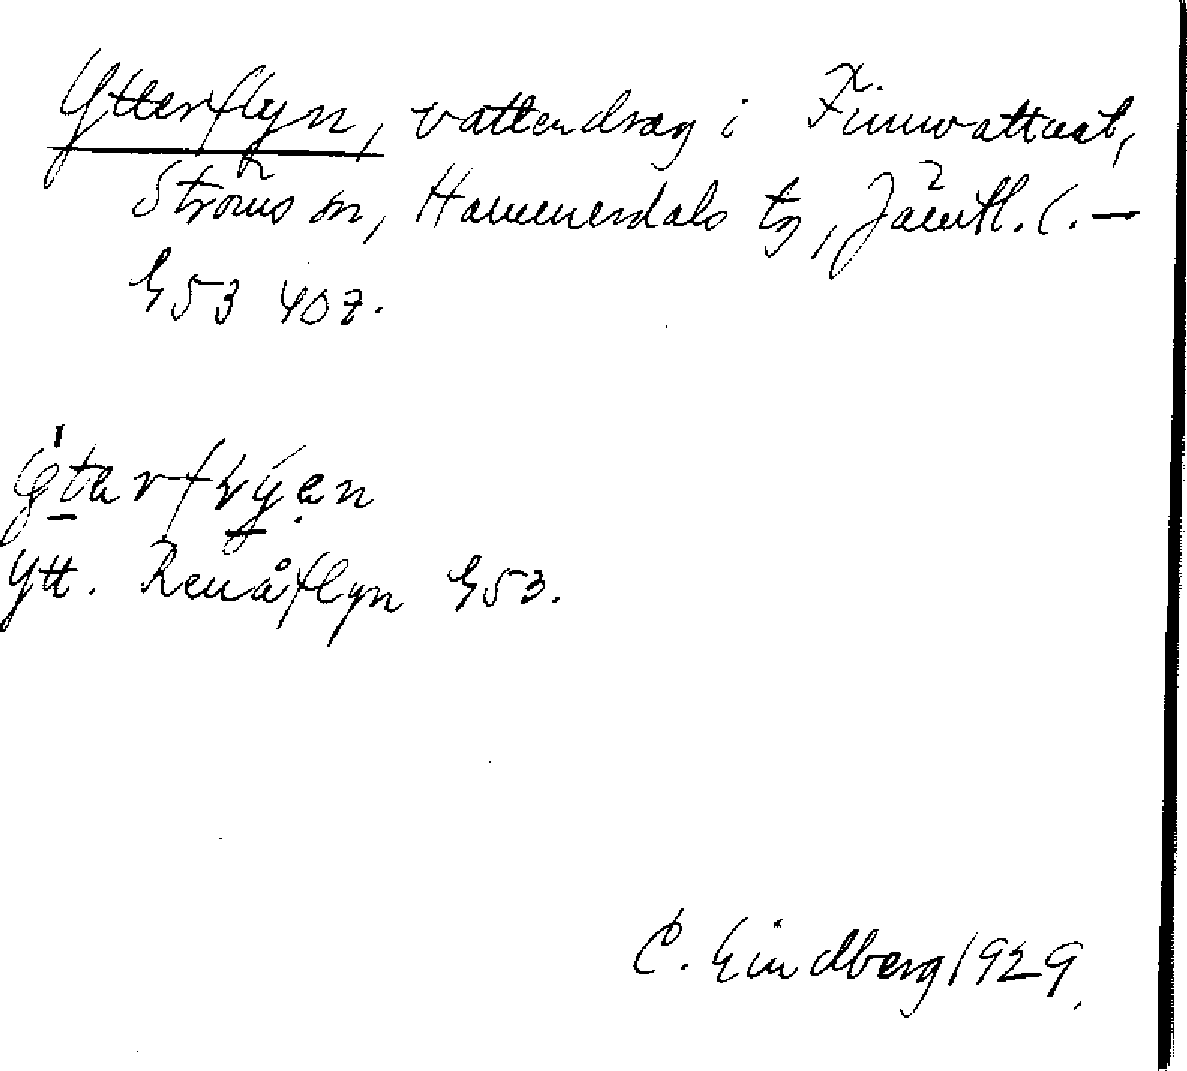 Ytterflyn, vattendrag i Finnvattnet,
Ströms sn, Hammerdals tg, Jämtl. l. —
G53 
Ytt. Renåflyn G53.
C. Lindberg 1929.